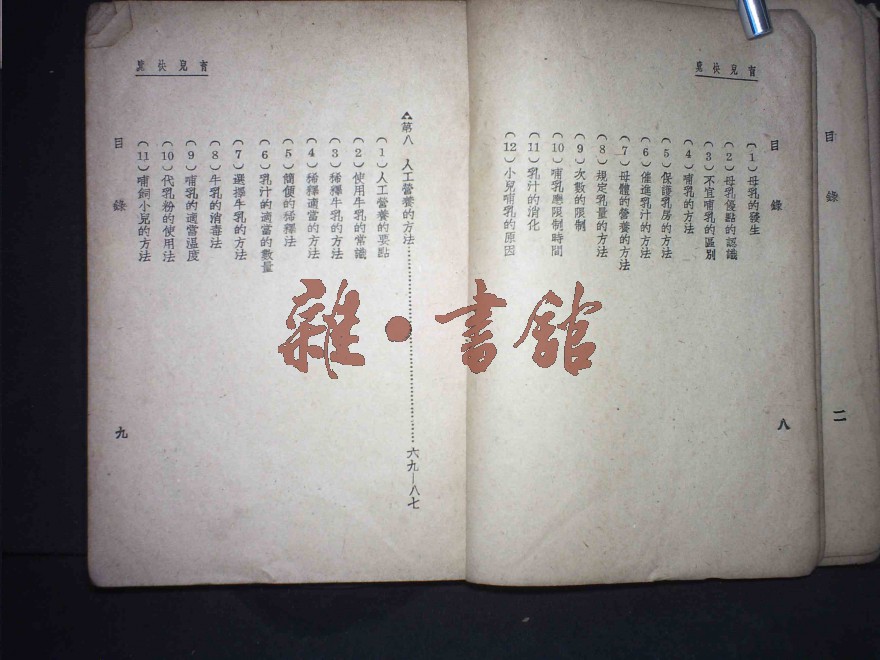 育兒快覽
目錄
(1)母乳的發生
(2)母乳優點的認識
(3)不宜哺乳的區別
(4)哺乳的方法
(5)保護乳房的方法
(6)催進乳汁的方法
(7)母體的營養的方法
(8)規定乳量的方法
(9)次數的限制
(10)哺乳應限制時間
(11)乳汁的消化
(12)小兒哺乳的原因
八
第八 人工營養的方法…………六九—八七
(1)人工營養的要點
(2)使用牛乳的常識
(3)稀釋牛乳的方法
(4)稀釋適當的方法
(5)簡便的稀釋法
(6)乳汁的適當的數量
(7)選擇牛乳的方法
(8)牛乳的消毒法
(9)哺乳的適當溫度
(10)代乳粉的使用法
(11)哺飼小兒的方法
育兒快覽
目錄
九
目錄
二
雜·書館